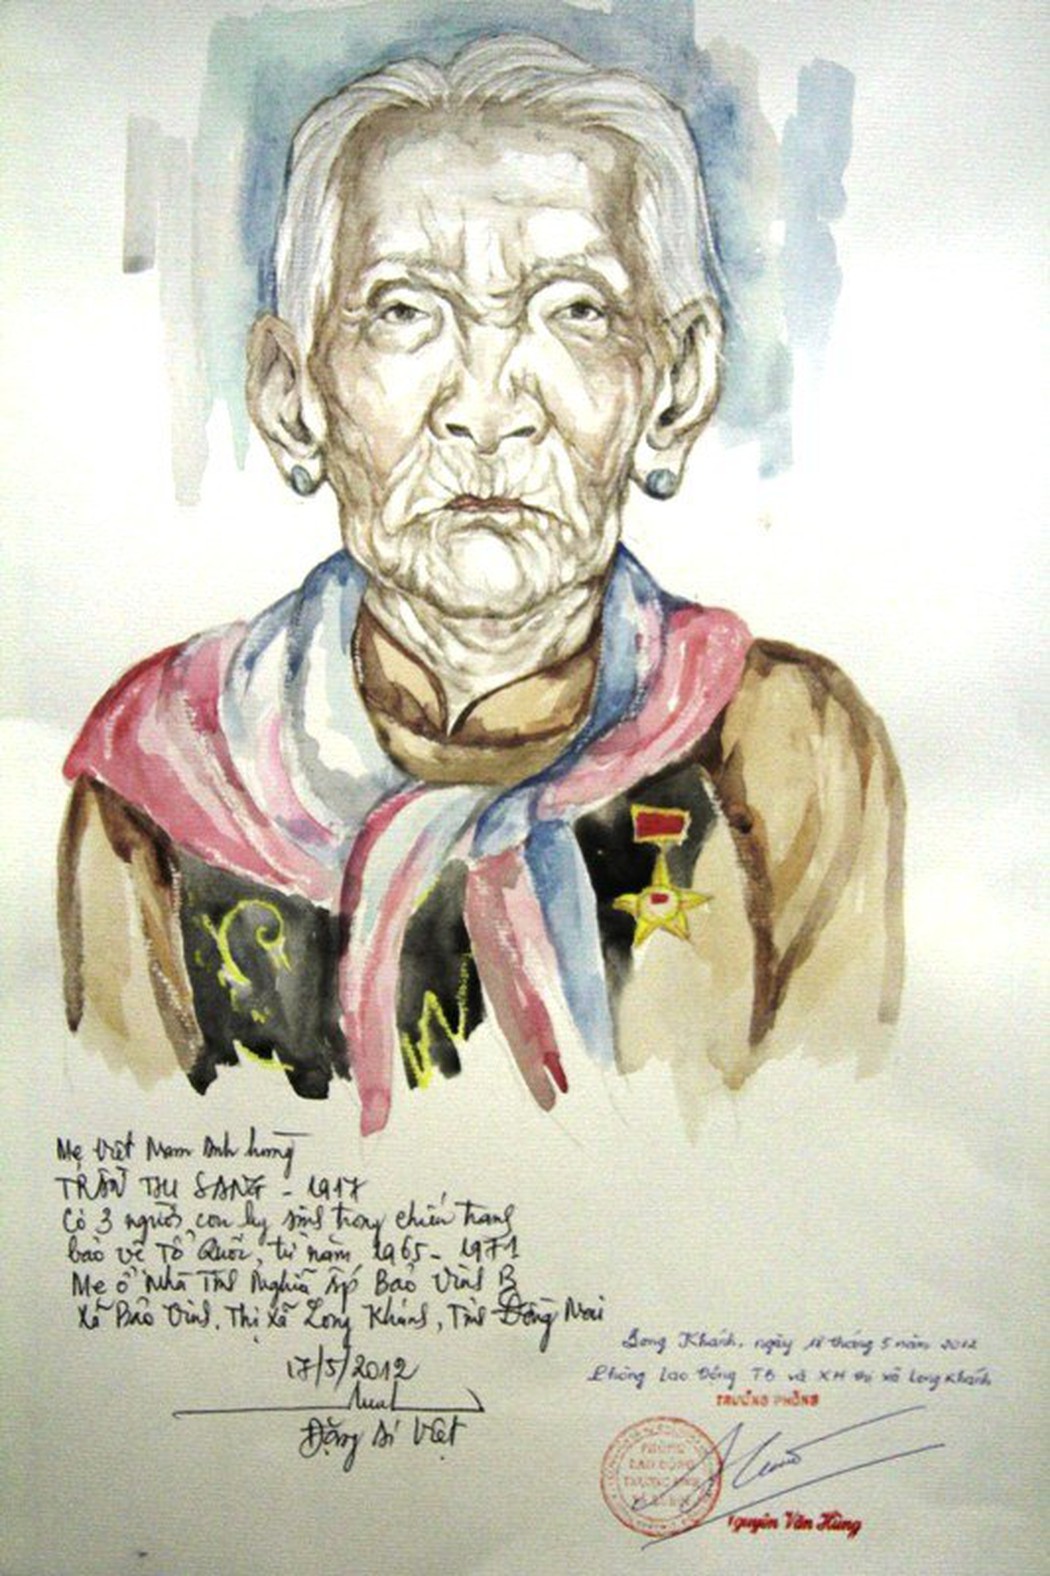 Mẹ Việt Nam Anh hùng
TRẦN THỊ SANG - 1917
Có 3 người con hy sinh trong chiến tranh
bảo vệ Tổ Quốc, từ năm 1965 - 1971
Mẹ ở Nhà Tình Nghĩa Ấp Bảo Vinh B
Xã Bảo Vinh, Thị Xã Long Khánh, Tỉnh Đồng Nai
17/5/2012
Đặng Ái Việt
Long Khánh, ngày tháng 5 năm 2012
Phòng Lao Động TB và XH thị xã Long Khánh
TRƯỞNG PHÒNG
PHÒNG
LAO ĐỘNG
THƯƠNG BINH
Nguyễn Văn Hùng